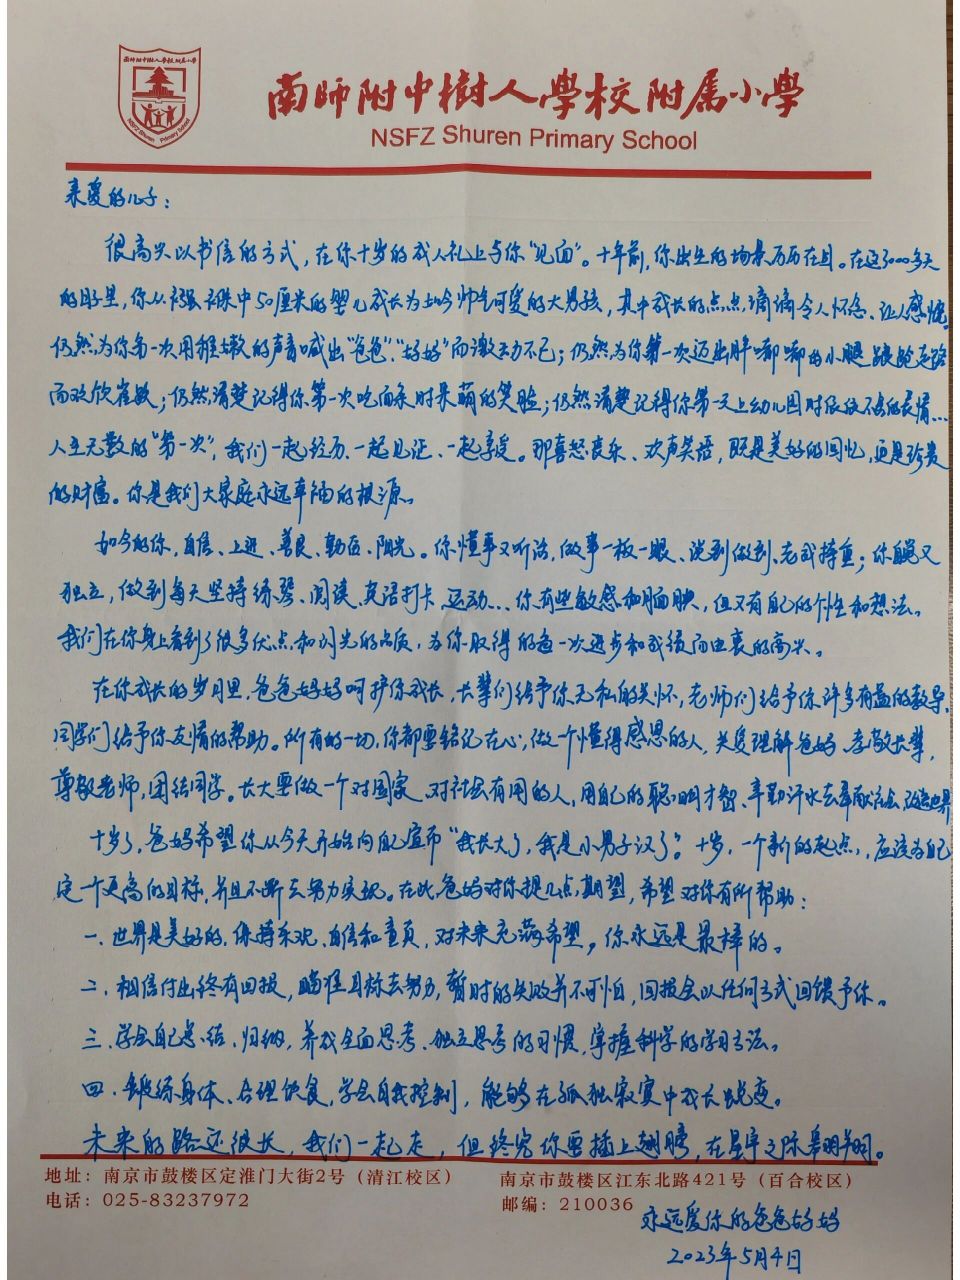 南师附中树人学校附属小学
NSFZ Shuren Primary School
南師附中樹人學校附属小學
NSFZ Shuren Primary School
亲爱的儿子：
很高兴以书信的方式，在你十岁的成人礼上与你“见面”。十年前，你出生的场景历历在目。在这3000多天
的日子里，你从襁褓中50厘米的婴儿成长为如今帅气可爱的大男孩，其中成长的点点滴滴令人怀念、让人感慨。
仍然为你第一次用稚嫩的声音喊出“爸爸”“妈妈”而激动不已；仍然为你第一次迈出胖嘟嘟的小腿蹒跚走路
而欢欣雀跃；仍然清楚记得你第一次吃面条时呆萌的笑脸；仍然清楚记得你第一天上幼儿园时依依不舍的表情…
人生无数的“第一次”，我们一起经历、一起见证、一起享受。那喜怒哀乐、欢声笑语，既是美好的回忆，还是珍贵
的财富。你是我们大家庭永远幸福的根源。
如今的你，自信、上进、善良、勤奋、阳光。你懂事又听话，做事一板一眼、说到做到、老成持重；你聪又
独立，做到每天坚持练琴、阅读、英语打卡、运动…你有些敏感和腼腆，但又有自己的个性和想法。
我们在你身上看到了很多优点和闪光的品质，为你取得的每一次进步和成绩而由衷的高兴。
在你成长的岁月里，爸爸妈妈呵护你成长，长辈们给予你无私的关怀，老师们给予你许多有益的教导，
同学们给予你友情的帮助。所有的一切，你都要铭记在心，做一个懂得感恩的人，关爱理解爸妈，孝敬长辈，
尊敬老师，团结同学。长大要做一个对国家、对社会有用的人，用自己的聪明才智、辛勤汗水去奉献社会，改造世界
十岁了，爸妈希望你从今天开始向自己宣布“我长大了，我是小男子汉了”。十岁，一个新的起点，应该为自己
定一个更高的目标，并且不断去努力实现。在此，爸妈对你提几点期望，希望对你有所帮助：
一、世界是美好的，保持乐观、自信和童真，对未来充满希望，你永远是最棒的。
二、相信付出终有回报，瞄准目标去努力，暂时的失败并不可怕，回报会以任何方式回馈予你。
三、学会自己总结、归纳，养成全面思考、独立思考的习惯，掌握科学的学习方法。
四、锻练身体、合理饮食，学会自我控制，能够在孤独寂寞中成长蜕变。
未来的路还很长，我们一起走，但终究你要插上翅膀，在星宇之际翱翔。
地址：南京市鼓楼区定淮门大街2号（清江校区） 南京市鼓楼区江东北路421号（百合校区）
电话：025-83237972 邮编：210036
永远爱你的爸爸妈妈
2023年5月4日